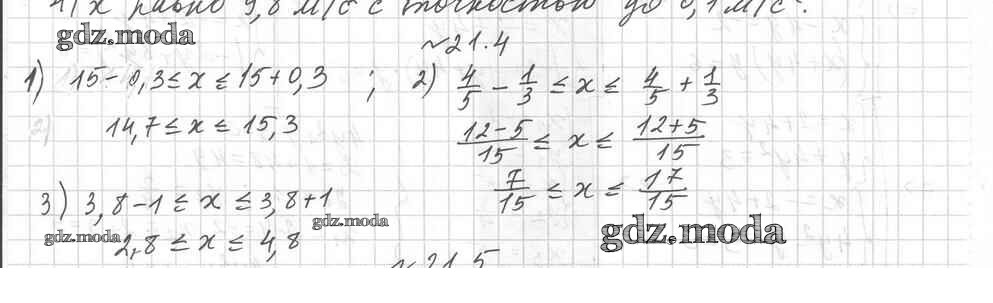 4) x равно 9,8 м/с² с точностью до 0,1 м/с².
gdz.moda
№21.4
1) 15-0,3≤x≤15+0,3 ; 2) 4/5 - 1/3 ≤ x ≤ 4/5 + 1/3
14,7≤x≤15,3
(12-5)/15 ≤ x ≤ (12+5)/15
7/15 ≤ x ≤ 17/15
3) 3,8-1 ≤ x ≤ 3,8+1
gdz.moda
2,8 ≤ x ≤ 4,8
gdz.moda
gdz.moda
№21.5